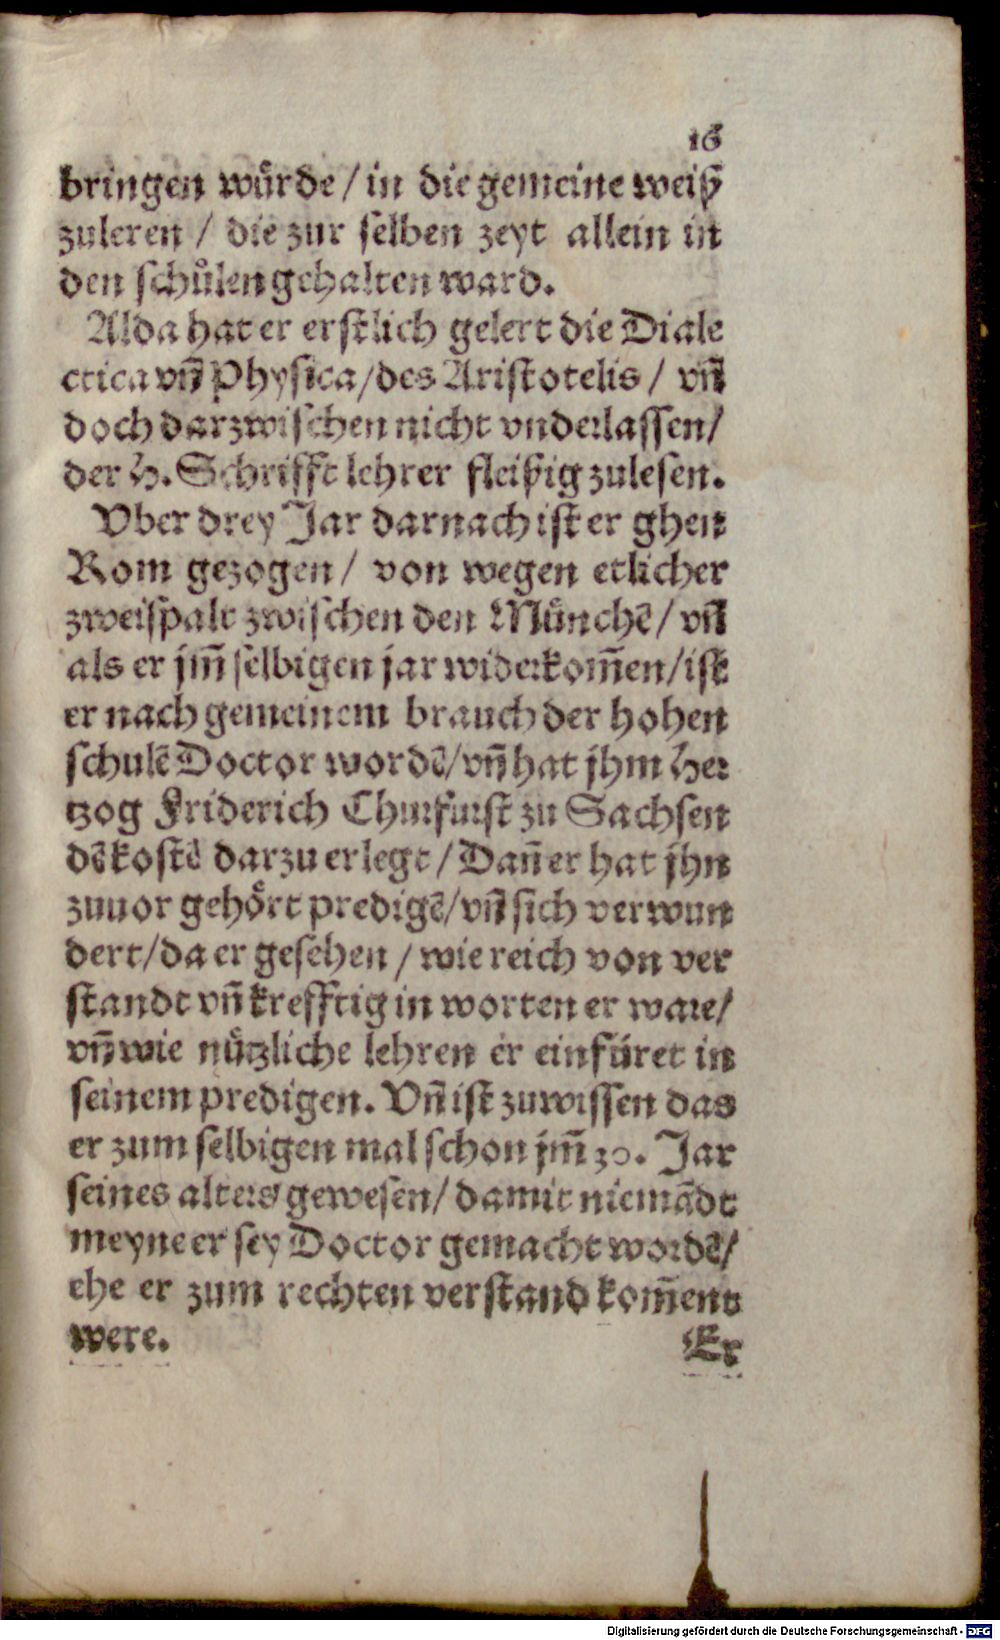 16
bringen wuͤrde / in die gemeine weiß
zuleren / die zur selben zeyt allein in
den schuͦlen gehalten ward.
Alda hat er erstlich gelert die Diale
ctica vn̄ Physica / des Aristotelis / vn̄
doch darzwischen nicht vnderlassen /
der H. Schrifft lehrer fleißig zulesen.
Vber drey Jar darnach ist er ghen
Rom gezogen / von wegen etlicher
zweispalt zwischen den Muͤnchē / vn̄
als er jm̄ selbigen jar widerkom̄en / ist
er nach gemeinem brauch der hohen
schulē Doctor wordē / vn̄ hat jhm Her
tzog Friderich Churfurst zu Sachsen
dē kostē darzu erlegt / Dan̄ er hat jhn
zuuor gehoͤrt predigē / vn̄ sich verwun
dert / da er gesehen / wie reich von ver
standt vn̄ krefftig in worten er ware /
vn̄ wie nuͤtzliche lehren er einfüret in
seinem predigen. Vn̄ ist zuwissen das
er zum selbigen mal schon jm̄ 30. Jar
seines alters gewesen / damit niemādt
meyne er sey Doctor gemacht wordē /
ehe er zum rechten verstand kom̄enn
were. Er
Digitalisierung gefördert durch die Deutsche Forschungsgemeinschaft - DFG